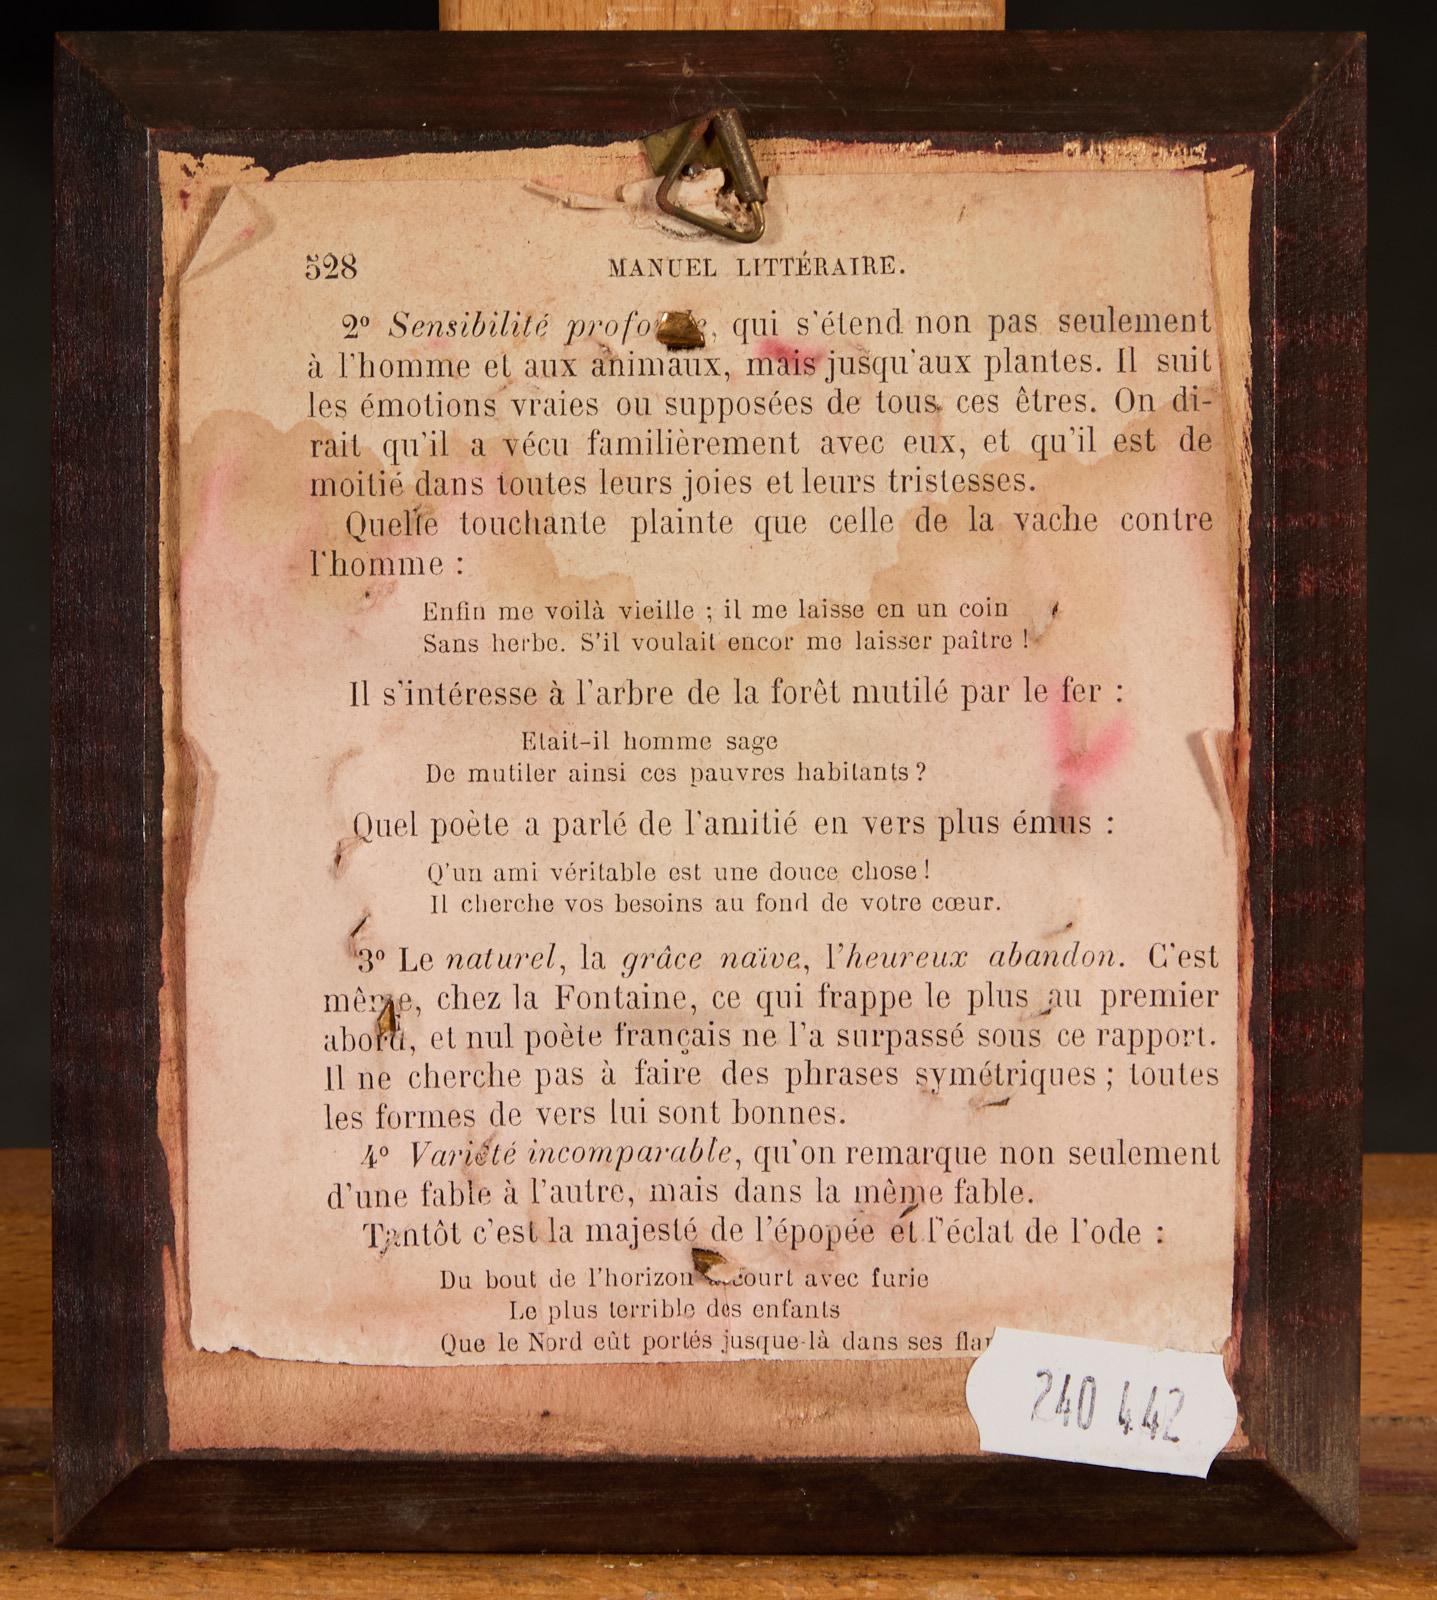 528 MANUEL LITTÉRAIRE.
2º Sensibilité profonde, qui s'étend non pas seulement
à l'homme et aux animaux, mais jusqu'aux plantes. Il suit
les émotions vraies ou supposées de tous ces êtres. On di-
rait qu'il a vécu familièrement avec eux, et qu'il est de
moitié dans toutes leurs joies et leurs tristesses.
Quelle touchante plainte que celle de la vache contre
l'homme :
Enfin me voilà vieille ; il me laisse en un coin
Sans herbe. S'il voulait encor me laisser paître !
Il s'intéresse à l'arbre de la forêt mutilé par le fer :
Etait-il homme sage
De mutiler ainsi ces pauvres habitants ?
Quel poète a parlé de l'amitié en vers plus émus :
Q'un ami véritable est une douce chose !
Il cherche vos besoins au fond de votre cœur.
3º Le naturel, la grâce naïve, l'heureux abandon. C'est
même, chez la Fontaine, ce qui frappe le plus au premier
abord, et nul poète français ne l'a surpassé sous ce rapport.
Il ne cherche pas à faire des phrases symétriques ; toutes
les formes de vers lui sont bonnes.
4º Variété incomparable, qu'on remarque non seulement
d'une fable à l'autre, mais dans la même fable.
Tantôt c'est la majesté de l'épopée et l'éclat de l'ode :
Du bout de l'horizon accourt avec furie
Le plus terrible des enfants
Que le Nord eût portés jusque-là dans ses
240 442